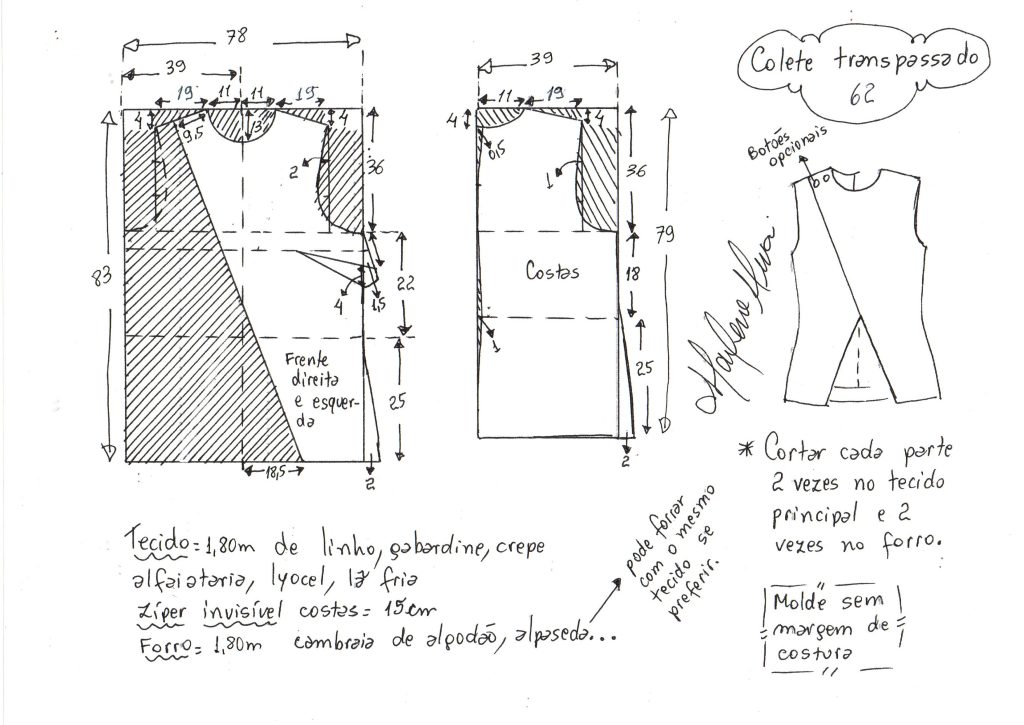 Colete transpassado
62
78
39
19
11
11
19
4
9,5
3
4
2
36
83
22
4
1,5
Frente
direita
e esquer-
da
25
18,5
2
39
11
19
4
4
0,5
1
36
79
Costas
18
1
25
2
Botões
opcionais
Marlene
* Cortar cada parte
2 vezes no tecido
principal e 2
vezes no forro.
Molde sem
margem de
costura
Tecido = 1,80m de linho, gabardine, crepe
alfaiataria, lyocel, lã fria
Zíper invisível costas = 15cm
Forro = 1,80m cambraia de algodão, alpaseda...
pode forrar
com o mesmo
tecido se
preferir.